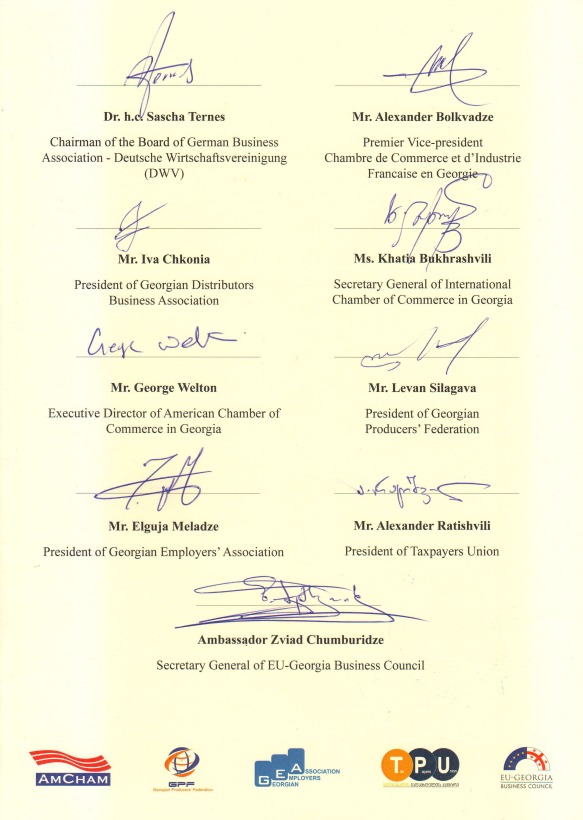 Dr. h.c. Sascha Ternes
Chairman of the Board of German Business
Association - Deutsche Wirtschaftsvereinigung
(DWV)
Mr. Alexander Bolkvadze
Premier Vice-president
Chambre de Commerce et d'Industrie
Francaise en Georgie
Mr. Iva Chkonia
President of Georgian Distributors
Business Association
Ms. Khatia Bukhrashvili
Secretary General of International
Chamber of Commerce in Georgia
George Welton
Mr. George Welton
Executive Director of American Chamber of
Commerce in Georgia
Mr. Levan Silagava
President of Georgian
Producers' Federation
Mr. Elguja Meladze
President of Georgian Employers' Association
Mr. Alexander Ratishvili
President of Taxpayers Union
Ambassador Zviad Chumburidze
Secretary General of EU-Georgia Business Council
AMCHAM
GPF
Georgian Producers' Federation
GEA
ASSOCIATION
EMPLOYERS
GEORGIAN
TPU
EU-GEORGIA
BUSINESS COUNCIL